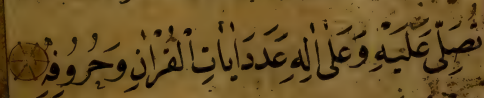 تُصَلِّىَ عَلَيْهِ وَعَلٰى اٰلِهِ عَدَدَ اٰيَاتِ الْقُرْاٰنِ وَحُرُوفِهِ